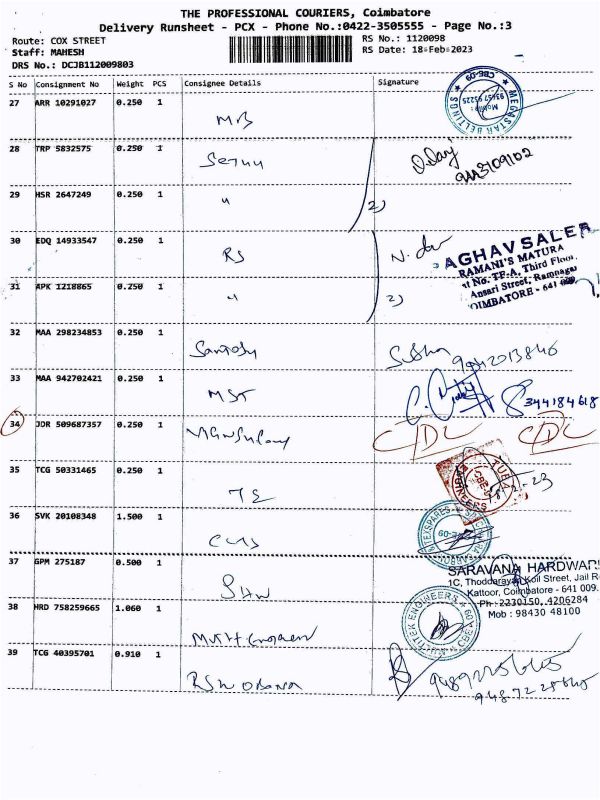 THE PROFESSIONAL COURIERS, Coimbatore
Delivery Runsheet - PCX - Phone No.:0422-3505555 - Page No.:3
Route: COX STREET
Staff: MAHESH
DRS No.: DCJB112009803
RS No.: 1120098
RS Date: 18-Feb-2023
S No Consignment No Weight PCS Consignee Details Signature
27 ARR 10291027 0.250 1
MB
MEGASTAR BELTINGS
CBE-09
28 TRP 5832575 0.250 1
29 HSR 2647249 0.250 1
" 2)
30 EDQ 14933547 0.250 1
RS
AGHAV SALES
RAMANI'S MATURA
No. TF-A, Third Floor,
Ansari Street, Ramnagar
OIMBATORE - 641 009
31 APK 1218865 0.250 1
" 2)
32 MAA 298234853 0.250 1
Santosh Subha 9842013846
33 MAA 942702421 0.250 1
MST 8344184618
34 JDR 509687357 0.250 1
CDC CDC
35 TCG 50331465 0.250 1
TE
36 SVK 20108348 1.500 1
CMS
37 GPM 275187 0.500 1
SHW
SARAVANA HARDWAR
1C, Thoddarayan Koil Street, Jail R
Kattoor, Coimbatore - 641 009.
Ph : 2230150, 4206284
Mob : 98430 48100
38 HRD 758259665 1.060 1
MULTITEK ENGINEERS
39 TCG 40395701 0.910 1